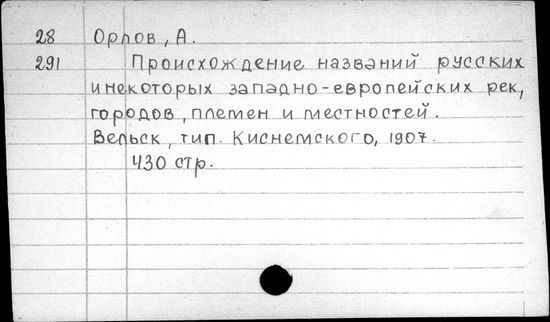 28 Орлов, А.
291 Происхождение названий русских
и некоторых западно-европейских рек,
городов, племен и местностей.
Вельск, тип. Киснемского, 1907.
430 стр.